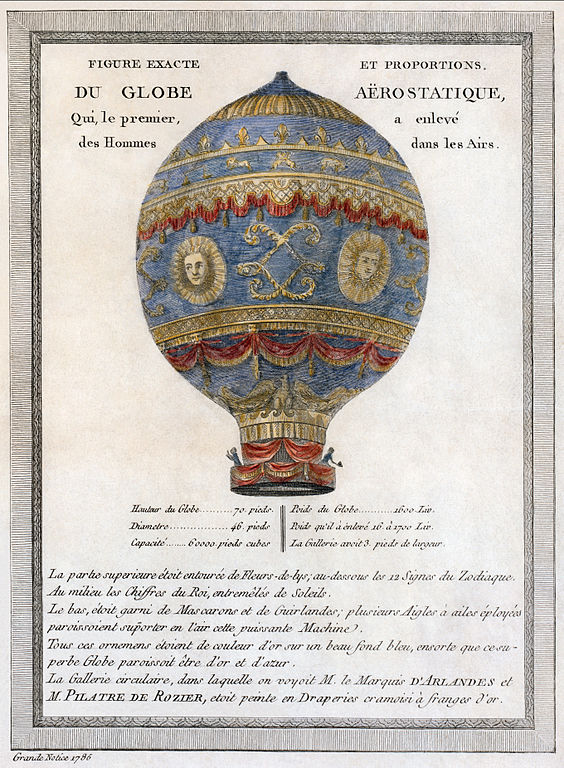 FIGURE EXACTE ET PROPORTIONS,
DU GLOBE AËROSTATIQUE,
Qui, le premier, a enlevé
des Hommes dans les Airs.
Hauteur du Globe..........70. pieds.
Diametre..................46. pieds
Capacité........60000. pieds cubes
Poids du Globe...........1600. Liv.
Poids qu'il à énlevé 16 à 1700 Liv.
La Gallerie avoit 3. pieds de largeur.
La partie superieure étoit entourée de Fleurs-de-lys, au-dessous les 12 Signes du Zodiaque.
Au milieu les Chiffres du Roi, entremêlés de Soleils.
Le bas, etoit garni de Mascarons et de Guirlandes; plusieurs Aigles à ailes éployées
paroissoient suporter en l'air cette puissante Machine.
Tous ces ornemens étoient de couleur d'or sur un beau fond bleu, ensorte que ce su-
perbe Globe paroissoit être d'or et d'azur.
La Gallerie circulaire, dans laquelle on voyoit M. le Marquis D'ARLANDES et
M. PILATRE DE ROZIER, etoit peinte en Draperies cramoisi à franges d'or.
Grande Notice 1786